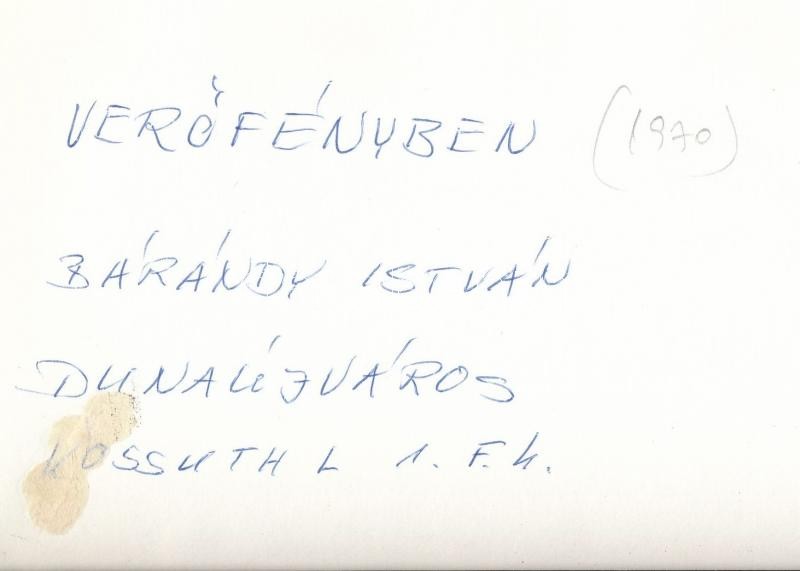 VERŐFÉNYBEN (1970)
BÁRÁNDY ISTVÁN
DUNAÚJVÁROS
KOSSUTH L 1. F. 4.